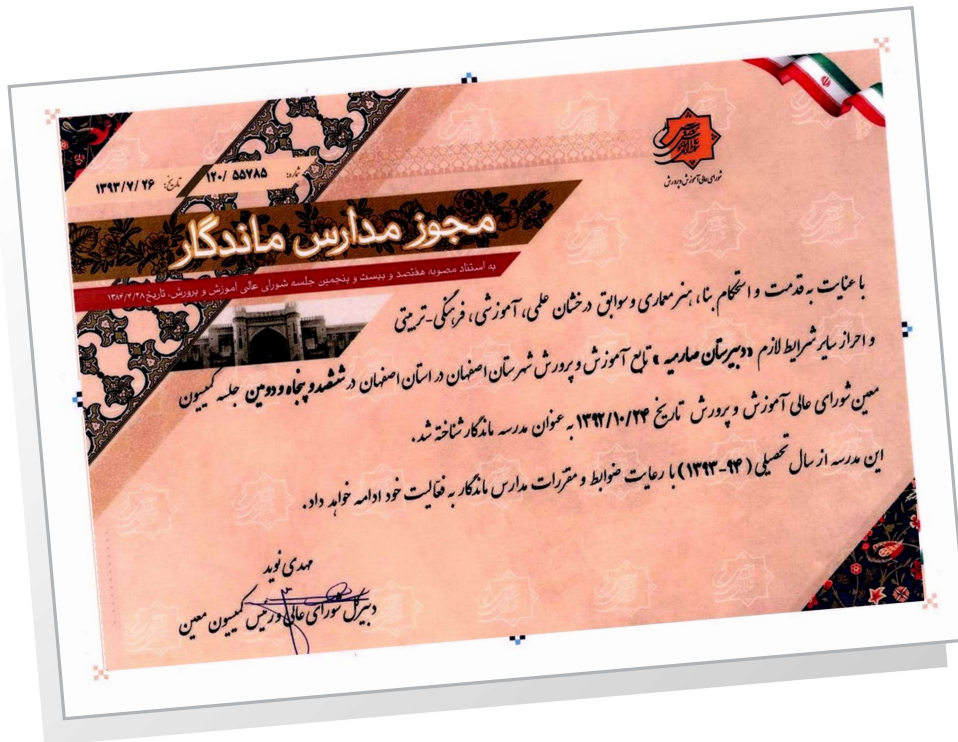 شورای عالی آموزش و پرورش
شماره: ۱۲۰/ ۵۵۷۸۵
تاریخ: ۱۳۹۳/۷/۲۶
مجوز مدارس ماندگار
به استناد مصوبه هفتصد و بیست و پنجمین جلسه شورای عالی آموزش و پرورش، تاریخ ۱۳۸۴/۲/۲۸
با عنایت به قدمت و استحکام بنا، هنر معماری و سوابق درخشان علمی، آموزشی، فرهنگی-تربیتی
و احراز سایر شرایط لازم «دبیرستان صارمیه» تابع آموزش و پرورش شهرستان اصفهان در استان اصفهان در ششصد و پنجاه و دومین جلسه کمیسیون
معین شورای عالی آموزش و پرورش تاریخ ۱۳۹۲/۱۰/۲۴ به عنوان مدرسه ماندگار شناخته شد.
این مدرسه از سال تحصیلی (۱۳۹۳-۹۴) با رعایت ضوابط و مقررات مدارس ماندگار به فعالیت خود ادامه خواهد داد.
مهدی نوید
دبیرکل شورای عالی و رئیس کمیسیون معین